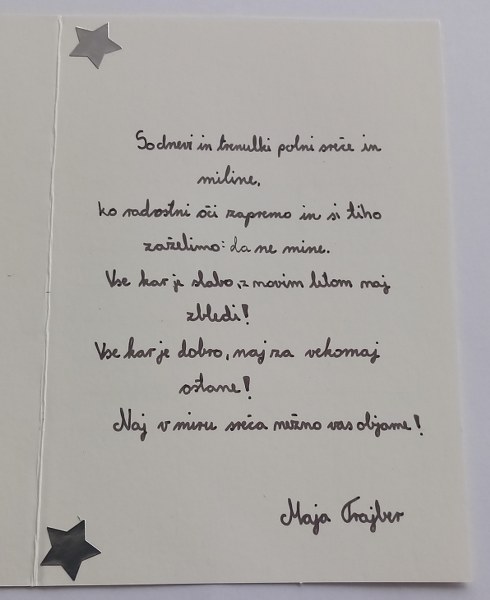 So dnevi in trenutki polni sreče in
miline,
ko radostni oči zapremo in si tiho
zaželimo: da ne mine.
Vse kar je slabo, z novim letom naj
zbledi!
Vse kar je dobro, naj za vekomaj
ostane!
Naj v miru sreča nežno vas objame!
Maja Trajber